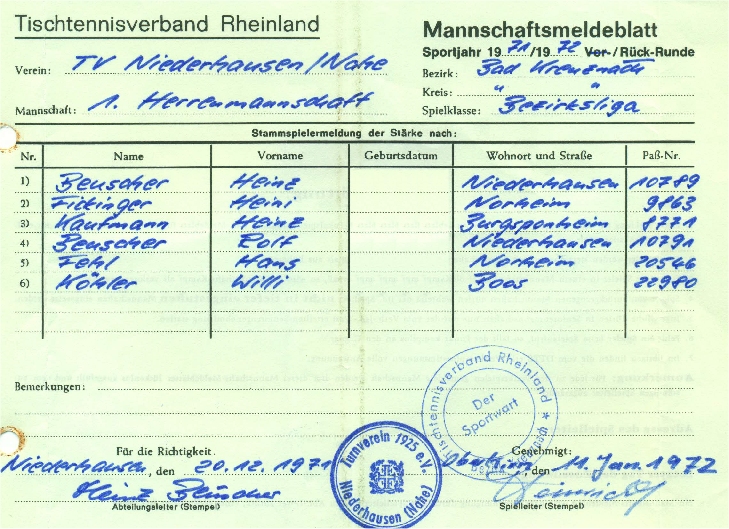 Tischtennisverband Rheinland
Mannschaftsmeldeblatt
Sportjahr 1971/1972 Vor-/Rück-Runde
Verein: TV Niederhausen/Nahe
Bezirk: Bad Kreuznach
Kreis: " "
Mannschaft: 1. Herrenmannschaft
Spielklasse: Bezirksliga
Stammspielermeldung der Stärke nach:
Nr. Name Vorname Geburtsdatum Wohnort und Straße Paß-Nr.
1) Beuscher Heinz Niederhausen 10789
2) Fickinger Heini Norheim 9863
3) Kaufmann Heinz Burgsponheim 8771
4) Beuscher Rolf Niederhausen 10791
5) Fehl Hans Norheim 20546
6) Köhler Willi Boos 22980
Bemerkungen:
Tischtennisverband Rheinland
Der Sportwart
Turnverein 1925 e.V.
Niederhausen (Nahe)
Für die Richtigkeit.
Genehmigt:
Niederhausen, den 20.12.1971
den 11. Jan. 1972
Heinz Beuscher
Abteilungsleiter (Stempel)
Spielleiter (Stempel)